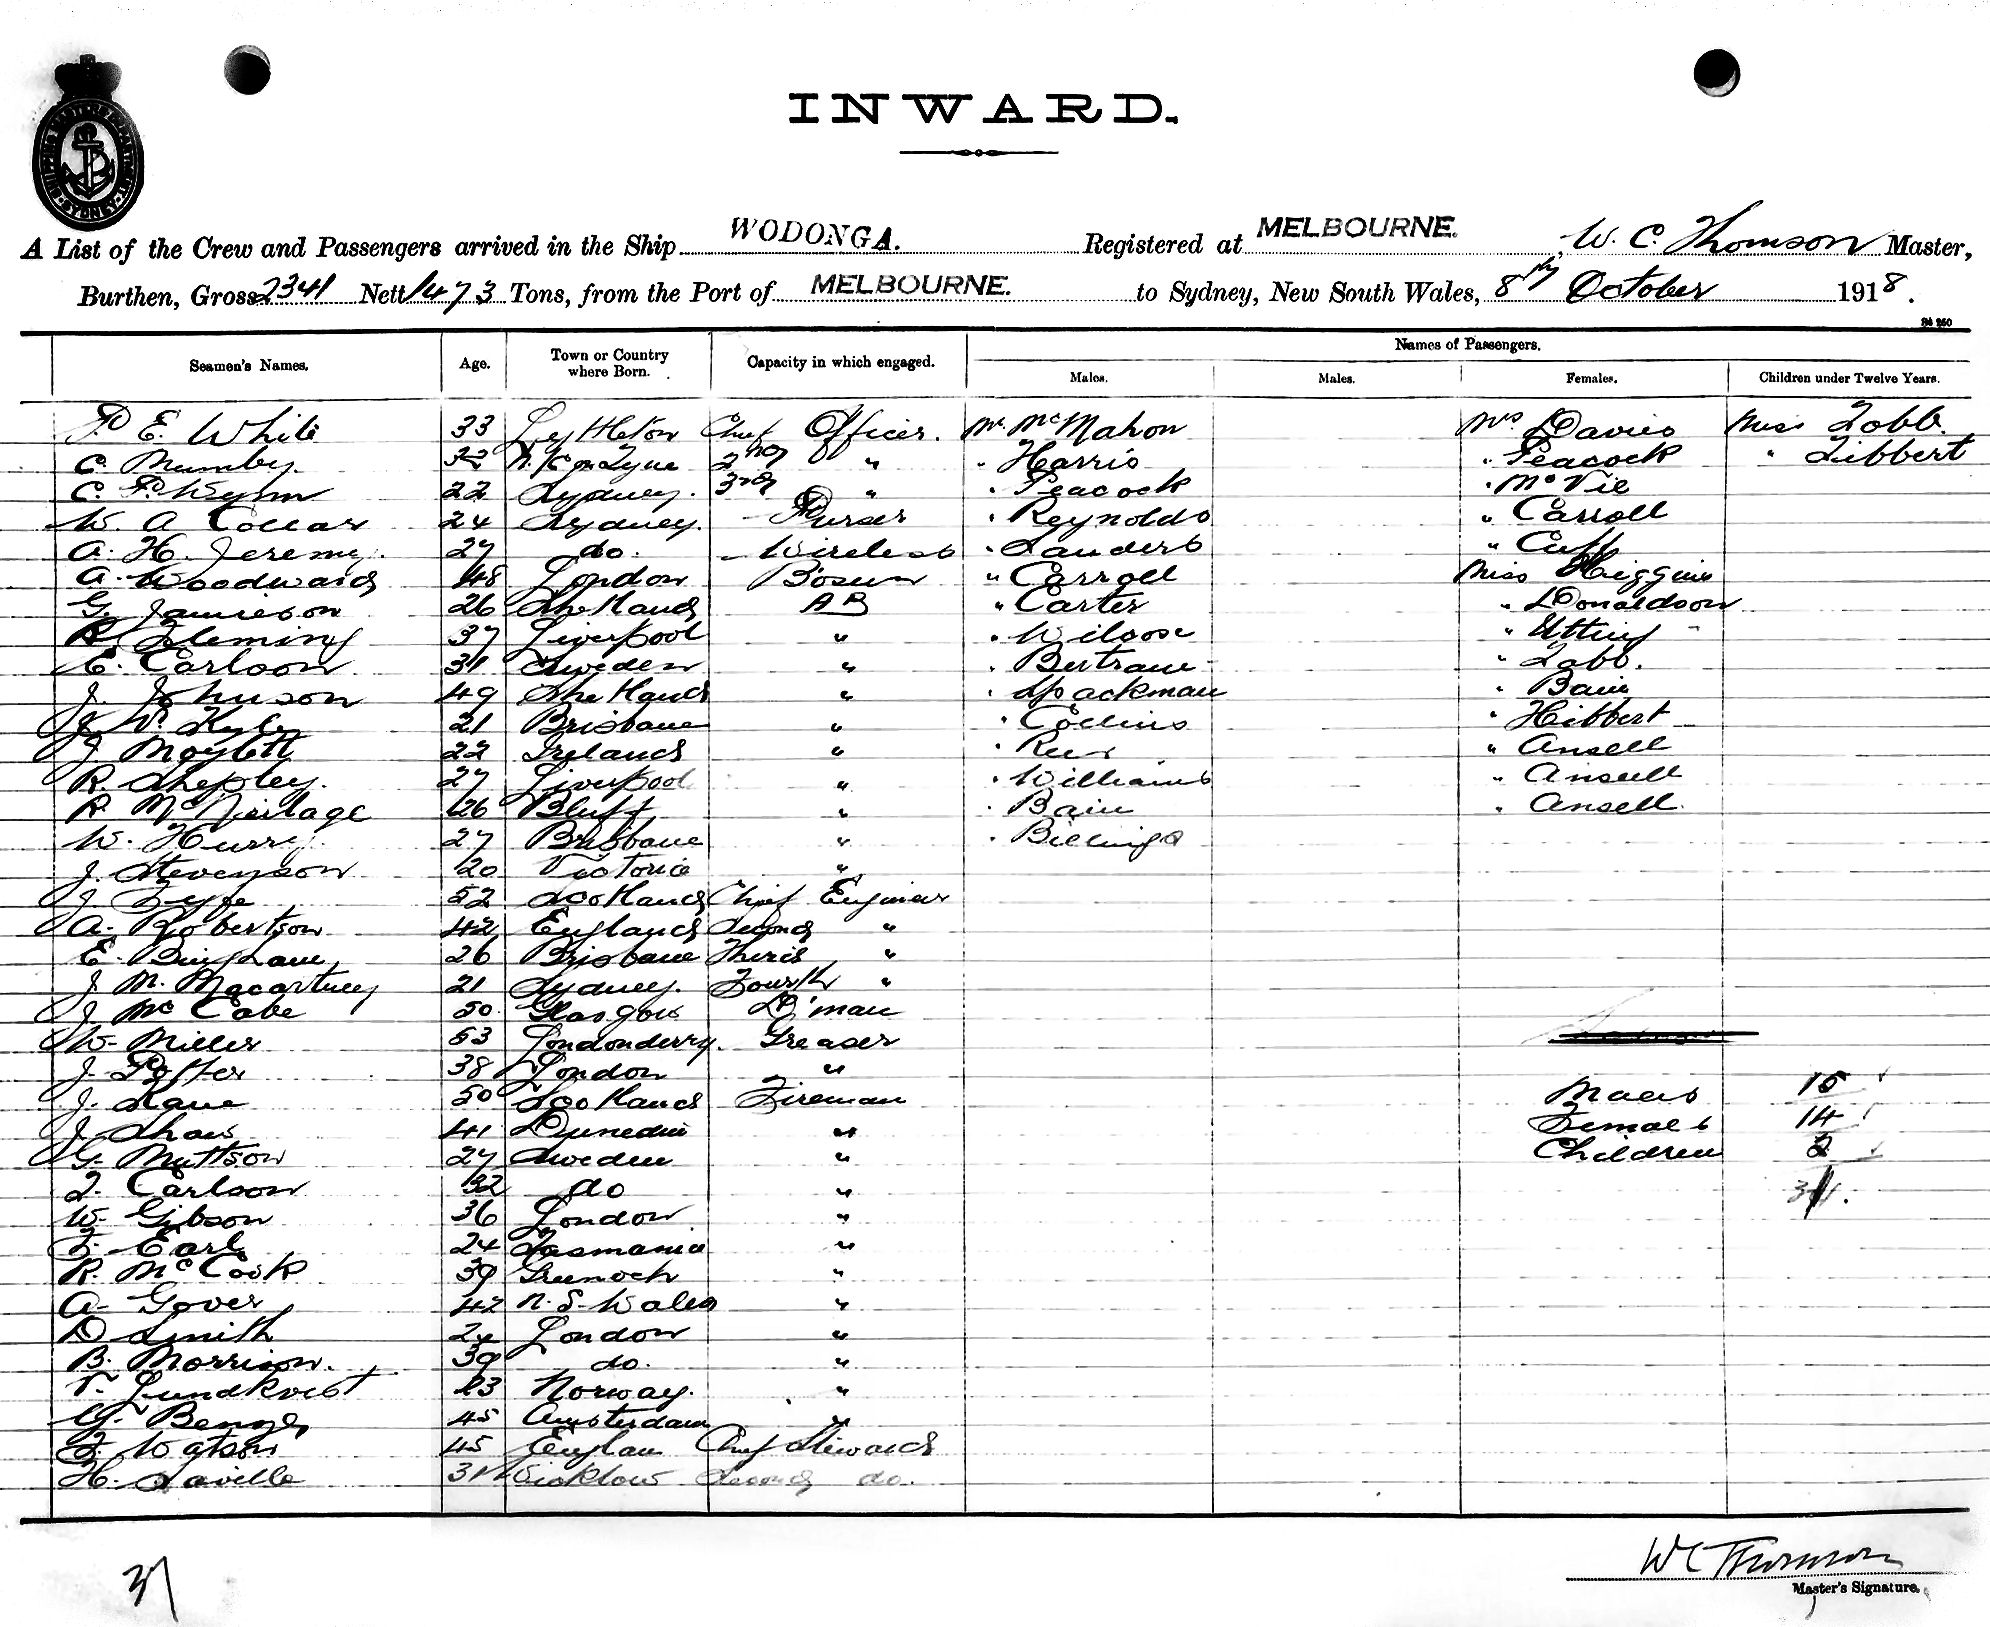 INWARD.
SHIPPING MASTER'S DEPARTMENT SYDNEY
A List of the Crew and Passengers arrived in the Ship WODONGA. Registered at MELBOURNE. W. C. Thomson Master,
Burthen, Gross 2341 Nett 1473 Tons, from the Port of MELBOURNE. to Sydney, New South Wales, 8th October 1918.
Seamen's Names. Age. Town or Country where Born. Capacity in which engaged. Names of Passengers.
Males. Males. Females. Children under Twelve Years.
P. E. White 33 Lyttleton Chief Officer. Mr. McMahon Mrs Davies Miss Tobb.
C. Mumby. 32 N. K on Tyne 2nd " " Harris " Peacock " Hibbert
C. P. Wynn 22 Sydney. 3rd " " Peacock " McVie
W. A Collas 24 Sydney. Purser " Reynolds " Carroll
A. H. Jeremy. 27 do. Wireless " Landers " Cuff
A. Woodward 48 London Bosun " Carroll Miss Higgins
G. Jamieson 26 Shetland AB " Carter " Donaldson
R. Fleming 37 Liverpool " " Wilcose " Utting
E. Carlson 31 Sweden " " Bertram " Tobb.
J. Johnson 49 Shetland " " Spackman " Bain
J. W. Kyle 21 Brisbane " " Collins " Hibbert
J. Moylett 22 Ireland " " " Ansell
R. Shepley. 27 Liverpool " " Williams " Ansell
R. McNeilage 26 Bluff " " Bain " Ansell.
W. Hurry. 27 Brisbane " " Billings
J. Stevenson 20 Victoria "
J. Fyfe 52 Scotland Chief Engineer
A. Robertson 42 England Second "
E. Bingham 26 Brisbane Third "
J. M. Macartney 21 Sydney. Fourth "
J. McCabe 50 Glasgow D'man
W. Miller 53 Londonderry. Greaser
J. Potter 38 London "
J. Kane 50 Scotland Fireman Males 15
J. Shaw 41 Dunedin " Females 14
G. Mattson 27 Sweden " Children 2
T. Carlson 32 do " 31.
W. Gibson 36 London "
F. Earl 24 Tasmania "
R. McCook 39 Greenock "
A. Gover 42 N. S. Wales "
D Smith 24 London "
B. Morrison. 39 do. "
T. Lundkvist 23 Norway. "
G. Benge 45 Amsterdam "
F. Watson 45 Englan Chief Steward
H. Saville 31 Wicklow Second do.
37
WC Thomson
Master's Signature.